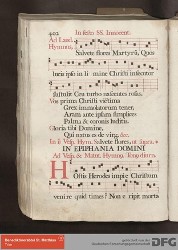 402 In festo SS. Innocent.
Ad Laud.
Hymnus. Salvete flores Martyrũ, Quos
lucis ipso in limine Christi insecutor
sustulit Ceu turbo nascentes rosas.
Vos prima Christi victima
Grex immolatorum tener,
Aram ante ipsam simplices
Palma & coronis luditis.
Gloria tibi Domine,
Qui natus es de virg. &c.
In ij. Vesp. Hym. Salvete flores, ut supra.
IN EPIPHANIA DOMINI
Ad Vesp. & Matut. Hymnus.
Hostis Herodes impie Christum
venire quid times? Non eripit morta
DFG